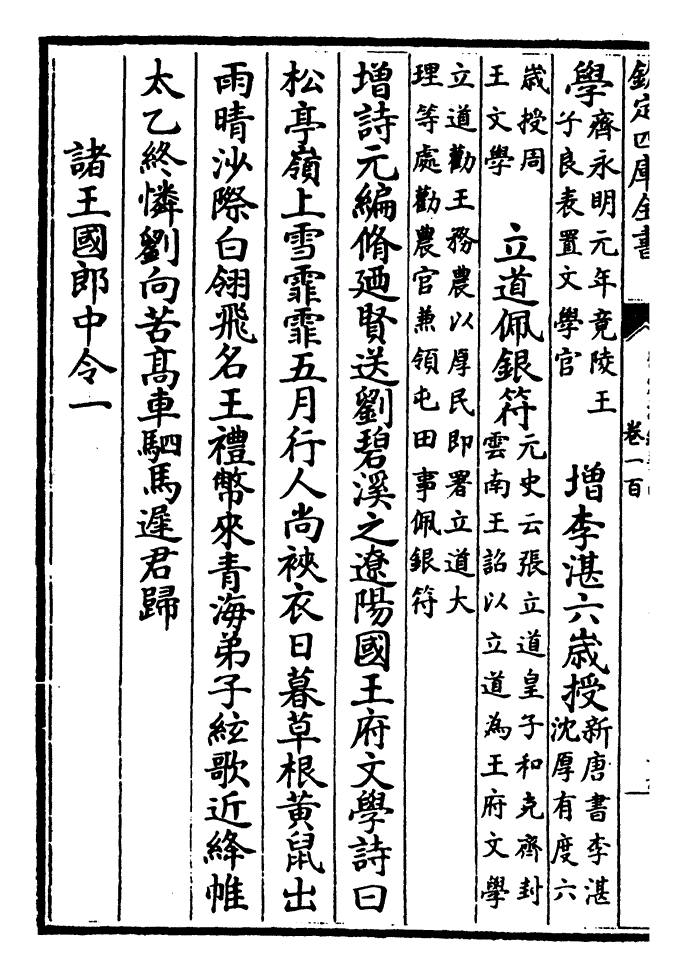 欽定四庫全書
卷一百
學齊永明元年竟陵王
子良表置文學官
增李湛六歳授新唐書李湛
沈厚有度六
歳授周
王文學
立道佩銀符元史云張立道皇子和克齊封
雲南王詔以立道為王府文學
立道勸王務農以厚民即署立道大
理等處勸農官兼領屯田事佩銀符
增詩元編脩廼賢送劉碧溪之遼陽國王府文學詩曰
松亭嶺上雪霏霏五月行人尚裌衣日暮草根黃鼠出
雨晴沙際白翎飛名王禮幣來青海弟子絃歌近絳帷
太乙終憐劉向苦髙車駟馬遲君歸
諸王國郎中令一